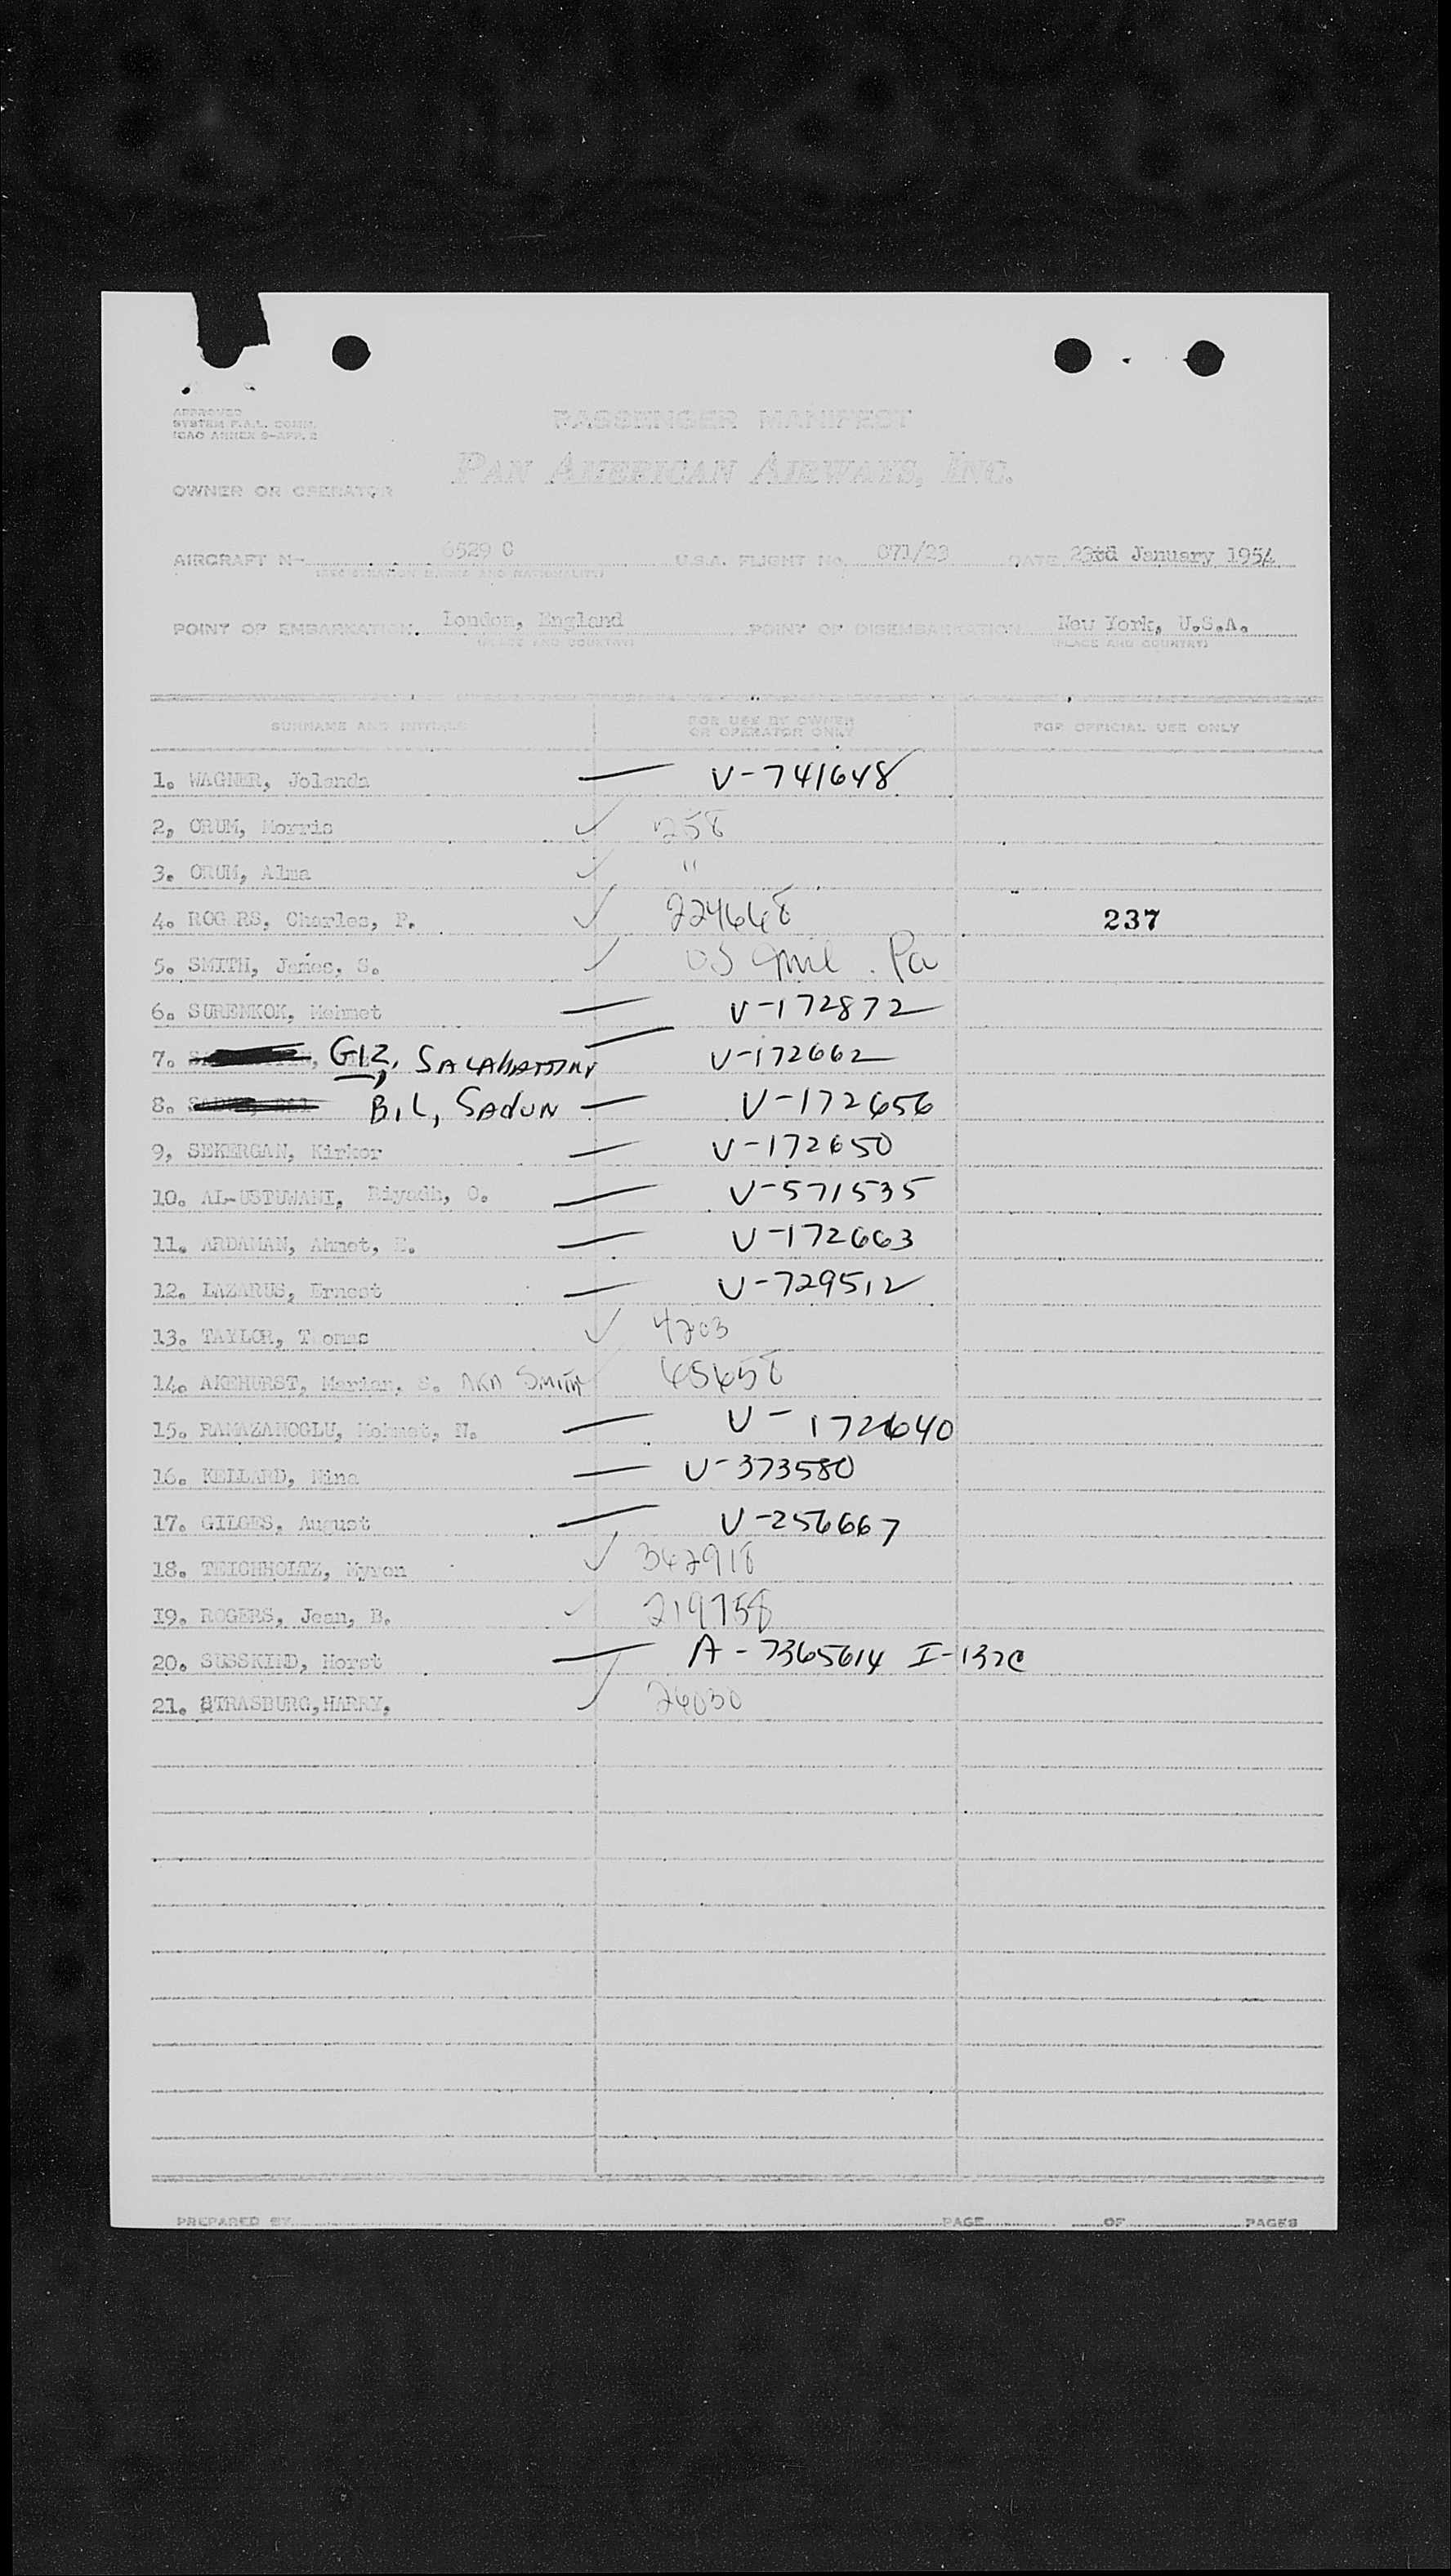 APPROVED
SYSTEM F.A.L. COMM.
ICAO ANNEX 9-APP. 2
PASSENGER MANIFEST
PAN AMERICAN AIRWAYS, INC.
OWNER OR OPERATOR
AIRCRAFT N- 6529 C U.S.A. FLIGHT No. 071/23 DATE 23rd January 1954
(REGISTRATION MARKS AND NATIONALITY)
POINT OF EMBARKATION London, England POINT OF DISEMBARKATION New York, U.S.A.
(PLACE AND COUNTRY) (PLACE AND COUNTRY)
SURNAME AND INITIALS FOR USE BY OWNER OR OPERATOR ONLY FOR OFFICIAL USE ONLY
1. WAGNER, Jolanda — V-741648
2, ORUM, Morris ✓ 258
3. ORUM, Alma ✓ "
4. ROGERS, Charles, F. ✓ 224668 237
5. SMITH, James, S. ✓ US Pa
6. SURENKOK, Mehmet — V-172872
7. GIZ, SALAHATTIN — V-172662
8. BIL, SADUN — V-172656
9, SEKERGAN, Kirkor — V-172650
10. AL-USTUWANI, Riyadh, O. — V-571535
11. ARDAMAN, Ahmet, E. — V-172663
12. LAZARUS, Ernest — V-729512
13. TAYLOR, Thomas ✓ 4203
14. AKEHURST, Marian, S. AKA SMITH ✓ 65658
15. RAMAZANOGLU, Mehmet, N. — V-172640
16. KELLARD, Nina — V-373580
17. GILGES, August — V-256667
18. TEICHHOLTZ, Myron ✓ 342918
19. ROGERS, Jean, B. ✓ 219758
20. SUSSKIND, Horst — A-7365614 I-132C
21. STRASBURG, HARRY, ✓ 26030
PREPARED BY PAGE OF PAGES